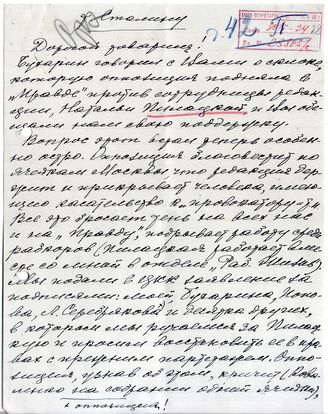 т. Сталину
Дорогой товарищ!
Бухарин говорил с Вами о склоке,
которую оппозиция подняла в
„Правде" против сотрудницы редак-
ции, Натальи Пилацкой, и Вы обе-
щали нам свою поддержку.
Вопрос этот встал теперь особен-
но остро. Оппозиция благовестит по
ячейкам Москвы, что редакция дер-
жит и прикрывает человека, имею-
щего касательство к провокатору.
Все это бросает тень на всех нас
и на „Правду", подрывает работу среди
рабкоров (Пилацкая работает вме-
сте со мной в отделе „Раб. Жизнь").
Мы подали в ЦКК заявление за
подписями: моей, Бухарина, Попо-
ва, Л. Серебрякова и десятка других,
в котором мы ручаемся за Пилац-
кую и просим восстановить ее в пра-
вах с прежним партстажем. Оппо-
зиция, узнав об этом, кричит (
на собрании одной ячейки),
+ оппозиция!